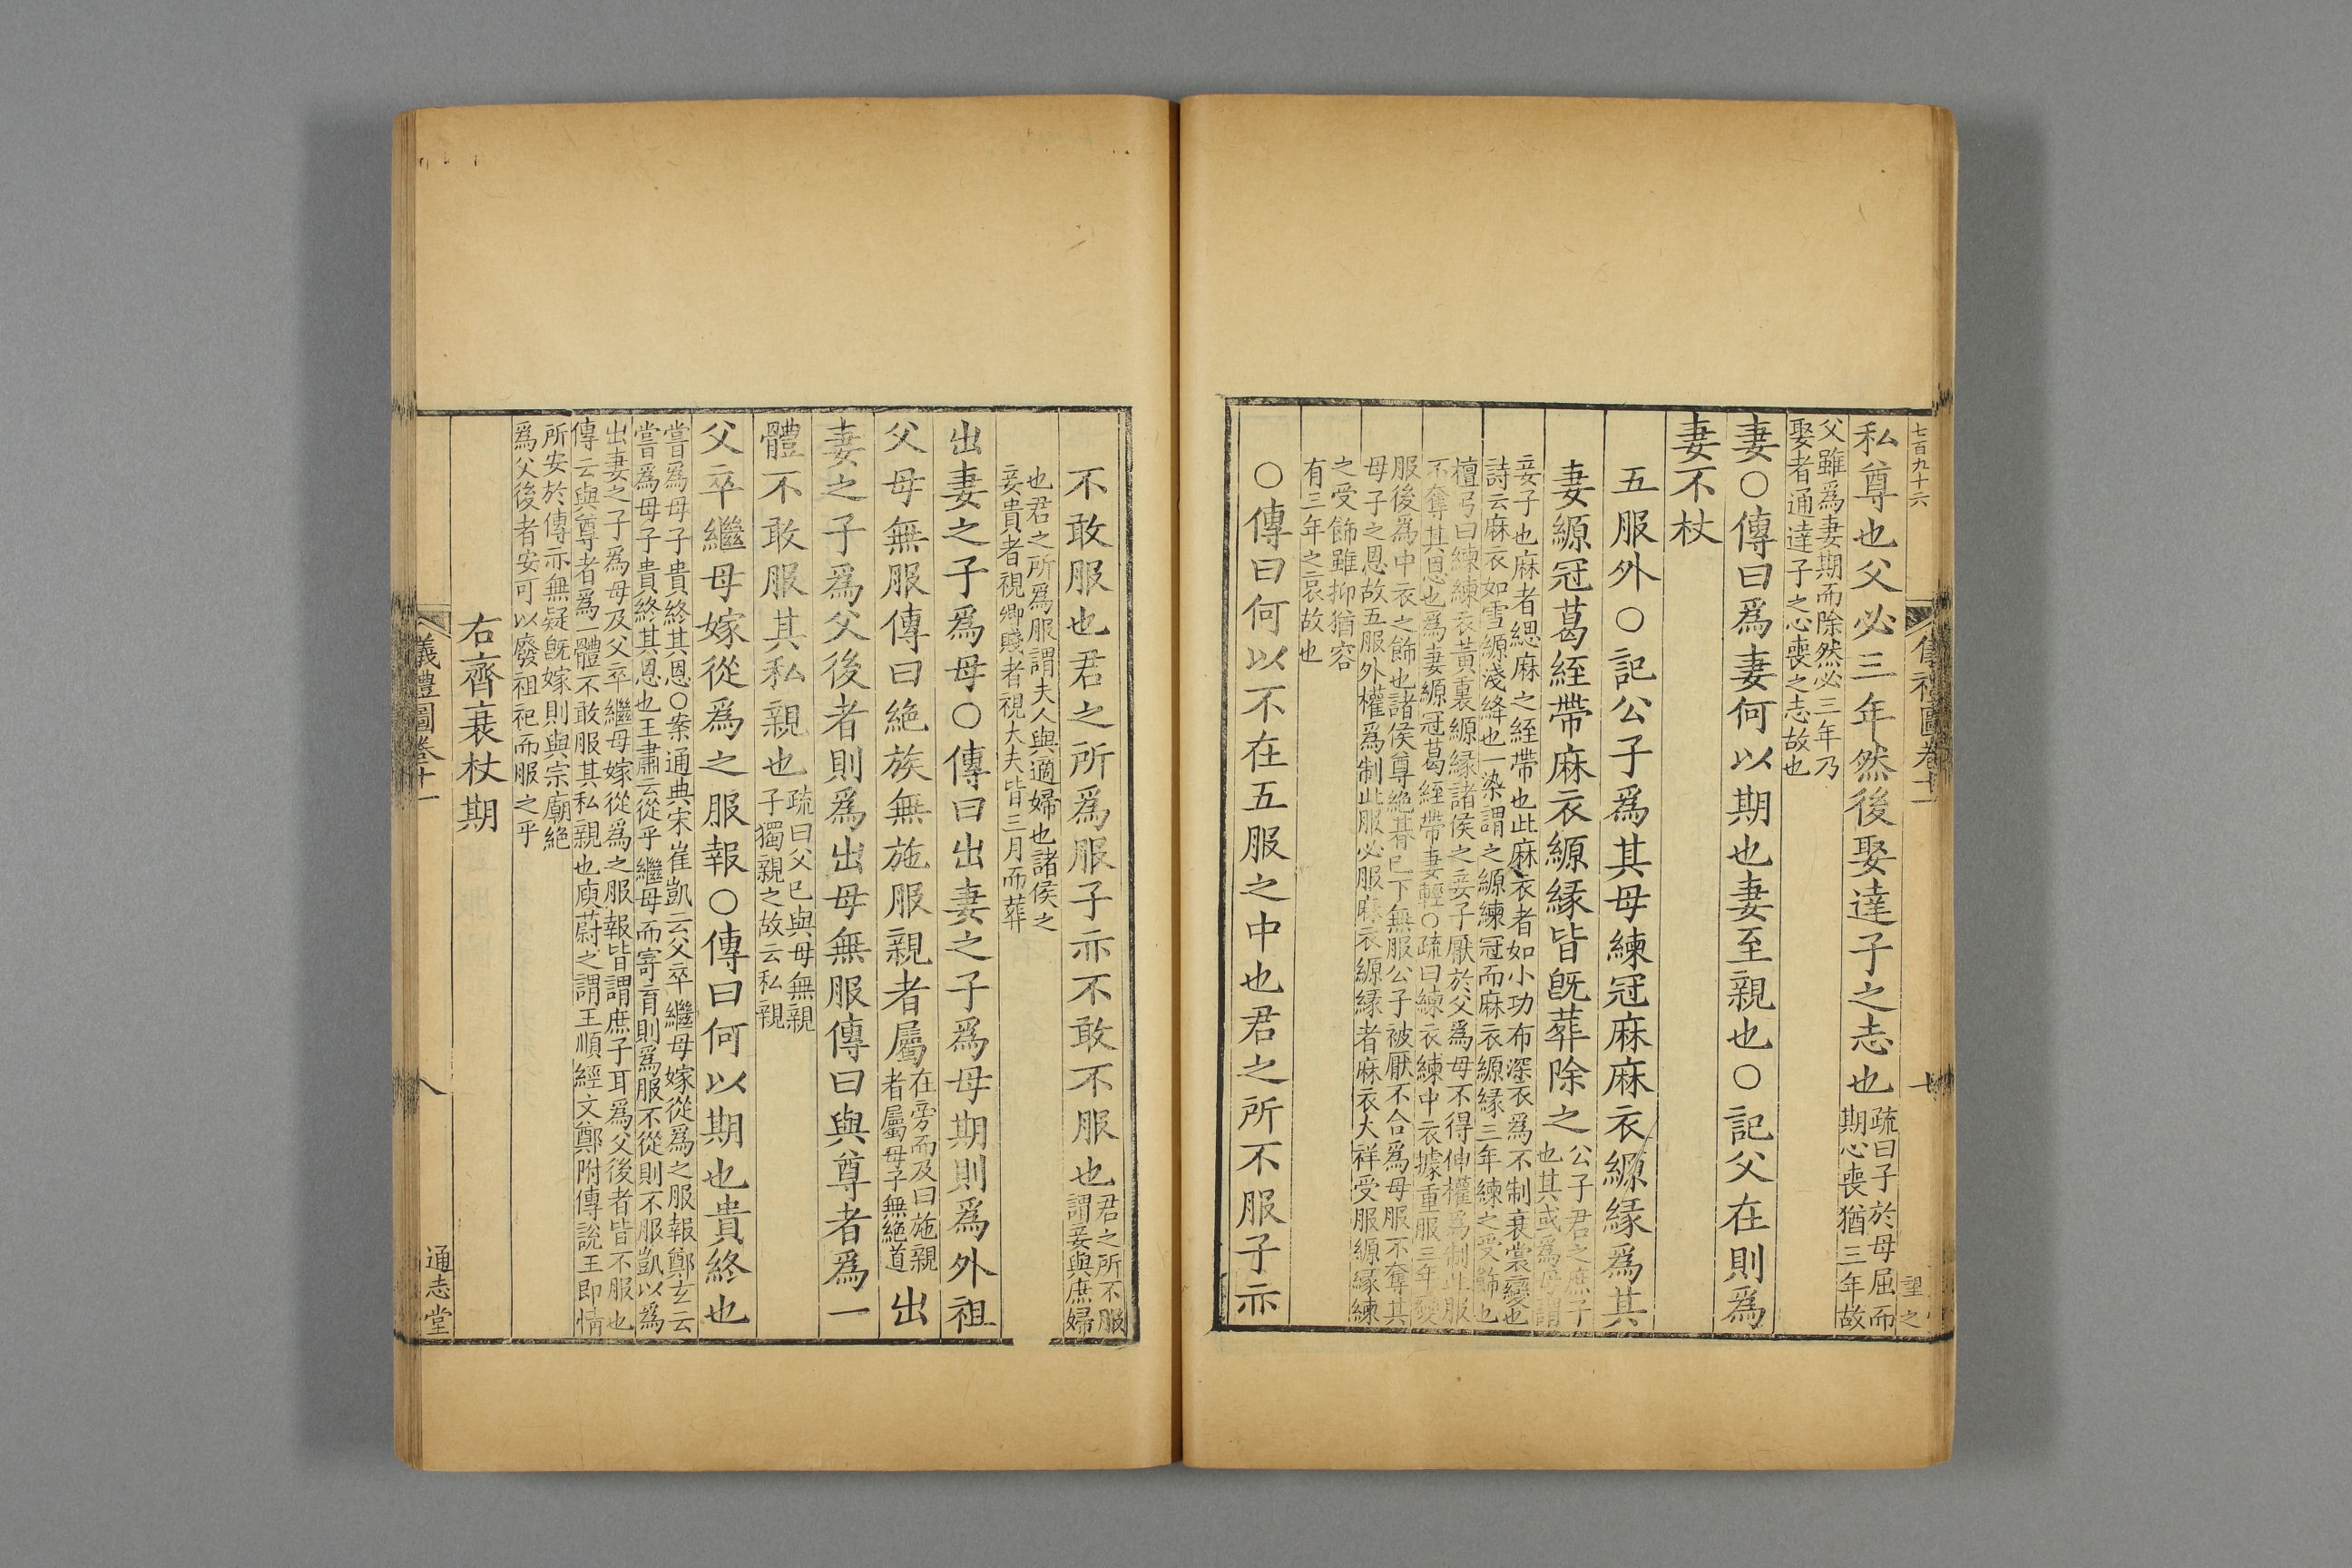 七百九十六
儀禮圖卷十一
七
望之
私尊也父必三年然後娶達子之志也
疏曰子於母屈而
期心喪猶三年故
父雖爲妻期而除然必三年乃
娶者通達子之心喪之志故也
妻○傳曰爲妻何以期也妻至親也○記父在則爲
妻不杖
五服外○記公子爲其母練冠麻麻衣縓緣爲其
妻縓冠葛絰帶麻衣縓緣皆旣葬除之
公子君之庶子
也其或爲母謂
妾子也麻者緦麻之絰帶也此麻衣者如小功布深衣爲不制衰裳變也
詩云麻衣如雪縓淺絳也一染謂之縓練冠而麻衣縓緣三年練之受飾也
檀弓曰練練衣黃裏縓緣諸侯之妾子厭於父爲母不得伸權爲制此服
不奪其恩也爲妻縓冠葛絰帶妻輕○疏曰練衣練中衣據重服三年變
服後爲中衣之飾也諸侯尊絶朞已下無服公子被厭不合爲母服不奪其
母子之恩故五服外權爲制此服必服麻衣縓緣者麻衣大祥受服縓緣練
之受飾雖抑猶容
有三年之哀故也
○傳曰何以不在五服之中也君之所不服子亦
不敢服也君之所爲服子亦不敢不服也
君之所不服
謂妾與庶婦
也君之所爲服謂夫人與適婦也諸侯之
妾貴者視卿賤者視大夫皆三月而葬
出妻之子爲母○傳曰出妻之子爲母期則爲外祖
父母無服傳曰絶族無施服親者屬
在旁而及曰施親
者屬母子無絶道
出
妻之子爲父後者則爲出母無服傳曰與尊者爲一
體不敢服其私親也
疏曰父已與母無親
子獨親之故云私親
父卒繼母嫁從爲之服報○傳曰何以期也貴終也
嘗爲母子貴終其恩○案通典宋崔凱云父卒繼母嫁從爲之服報鄭玄云
嘗爲母子貴終其恩也王肅云從乎繼母而寄育則爲服不從則不服凱以爲
出妻之子爲母及父卒繼母嫁從爲之服報皆謂庶子耳爲父後者皆不服也
傳云與尊者爲一體不敢服其私親也庾蔚之謂王順經文鄭附傳說王即情
所安於傳亦無疑旣嫁則與宗廟絶
爲父後者安可以廢祖祀而服之乎
右齊衰杖期
儀禮圖卷十一
八
通志堂